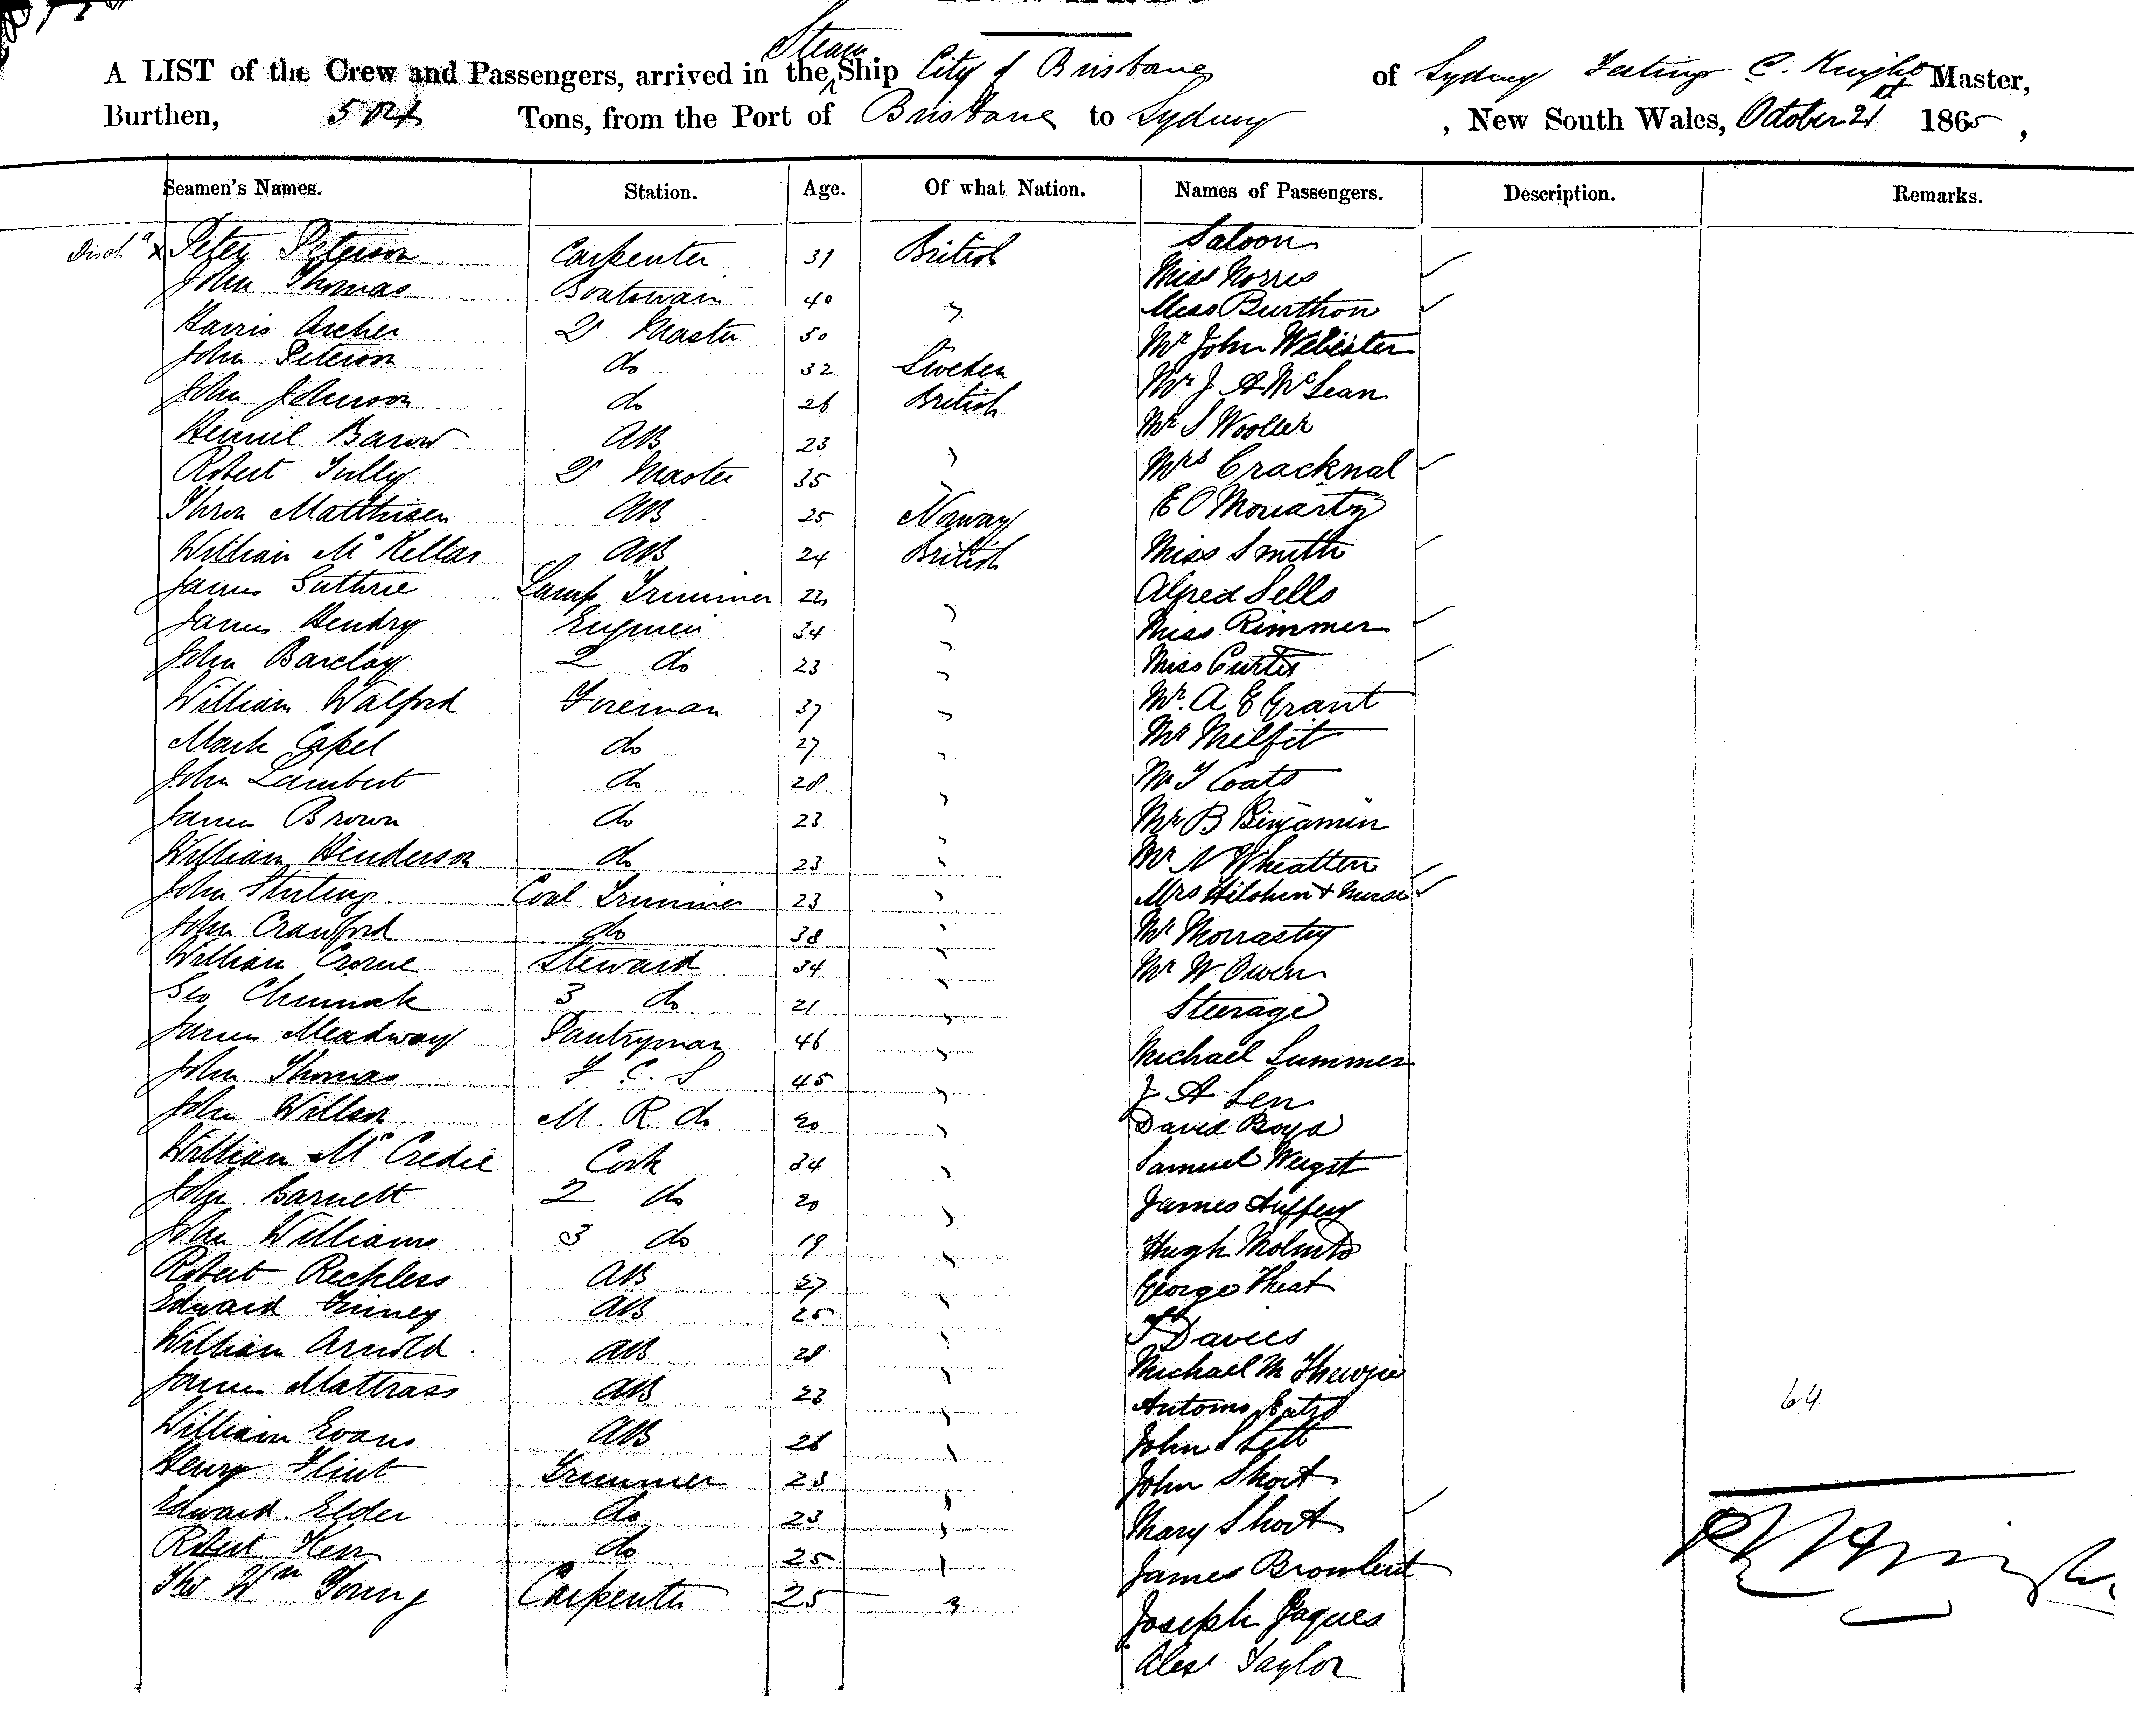 A LIST of the Crew and Passengers, arrived in the Steam Ship City of Brisbane of Sydney C. Knight Master,
Burthen, 504 Tons, from the Port of Brisbane to Sydney , New South Wales, October 21st 1865 ,
Seamen's Names. Station. Age. Of what Nation. Names of Passengers. Description. Remarks.
Saloon
x Peter Peterson Carpenter 31 British Miss Norris ✓
John Thomas Boatswain 40 " Miss Burthon ✓
Harris Archer 2r Master 50 Mr John Webister
John Peterson do 32 Sweden Mr J A McLean
John Johnson do 26 British Mr S Wooller
Barow AB 23 " Mrs Cracknal ✓
Robert Tully 2r Master 35 " E O Moriarty
Thron Matthisen AB 25 Norway Miss Smith ✓
William McKellar AB 24 British Alfred Sells
James Guthrie Lamp Trimmer 22 " Miss Rimmer ✓
James Hendry Engineer 34 " Miss Curtis ✓
John Barclay 2 do 23 " Mr. A E Grant
William Walford Fireman 37 " Mr Melfit
Mark Capel do 27 " Mr T Coats
John Lambert do 28 " Mr B Binjamin
James Brown do 23 " Mr N Wheatten
William Henderson do 23 " Mrs + Nurse ✓✓
John Stirling Coal Trimmer 23 " Mr Morrasty
John Crawford do 38 " Mr W Owen
William Crorie Steward 34 " Steerage
Geo 3 do 21 " Michael Summer
James Meadway Pantryman 46 " J A Len
John Thomas F C S 45 " David Boyd
John Willson M R do 20 " Samuel Weigst
William McCredie Cook 34 " James
John Barnett 2 do 20 " Hugh
John Williams 3 do 19 " George Theat
Robert Reckless AB 27 " T Davies
Edward AB 25 " Michael
William Arnold AB 28 " Antoino
James Mattrass AB 23 " John Stett
William Evans AB 26 " John Short
Henry Flint Trimmer 23 " Mary Short ✓
Edward Elder do 23 " James Bromlent
Robert Kerr do 25 " Joseph Jaques
Thos Wm Young Carpenter 25 " Alexr Taylor
64